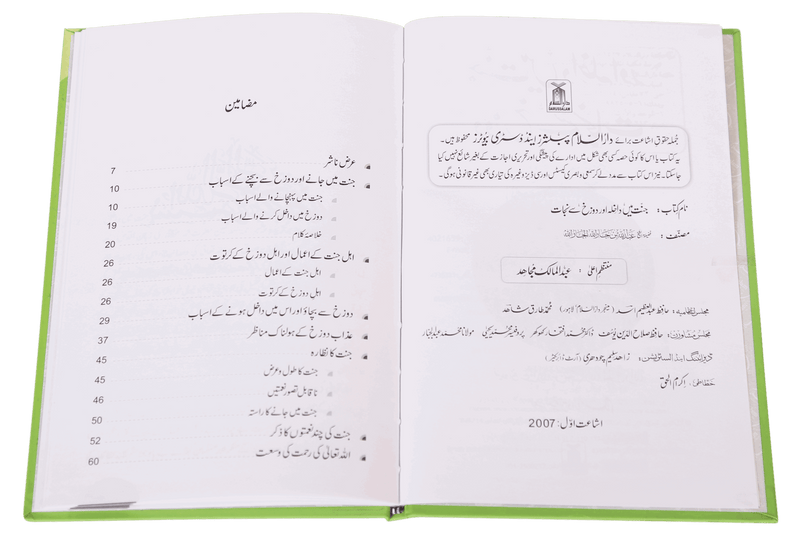 دارالسلام
DARUSSALAM
جملہ حقوق اشاعت برائے دارالسلام پبلشرز اینڈ ڈسٹری بیوٹرز محفوظ ہیں۔
یہ کتاب یا اس کا کوئی حصہ کسی بھی شکل میں ادارے کی پیشگی اور تحریری اجازت کے بغیر شائع نہیں کیا
جاسکتا۔ نیز اس کتاب سے مدد لے کر سمعی و بصری کیسٹس اور سی ڈیز وغیرہ کی تیاری بھی غیر قانونی ہوگی۔
نام کتاب: جنت میں داخلہ اور دوزخ سے نجات
مصنف: عبداللہ بن جاراللہ الجاراللہ
منتظم اعلیٰ: عبدالمالک مجاہد
مجلس انتظامیہ: حافظ عبدالعظیم اسد (مینیجر دارالسلام لاہور) محمد طارق شاہد
مجلس مشاورت: حافظ صلاح الدین یوسف ڈاکٹر محمد افتخار کھوکھر پروفیسر محمد یحییٰ مولانا محمد عبدالجبار
ڈیزائننگ اینڈ السٹریشن: زاہد سلیم چودھری (آرٹ ڈائریکٹر)
خطاطی: اکرام الحق
اشاعت اول: 2007
مضامین
عرض ناشر 7
جنت میں جانے اور دوزخ سے بچنے کے اسباب 10
جنت میں پہنچانے والے اسباب 10
دوزخ میں داخل کرنے والے اسباب 19
خلاصۂ کلام 20
اہل جنت کے اعمال اور اہل دوزخ کے کرتوت 26
اہل جنت کے اعمال 26
اہل دوزخ کے کرتوت 26
دوزخ سے بچاؤ اور اس میں داخل ہونے کے اسباب 29
عذاب دوزخ کے ہولناک مناظر 37
جنت کا نظارہ 45
جنت کا طول و عرض 45
ناقابل تصور نعمتیں 46
جنت میں جانے کا راستہ 50
جنت کی چند نعمتوں کا ذکر 52
اللہ تعالیٰ کی رحمت کی وسعت 60